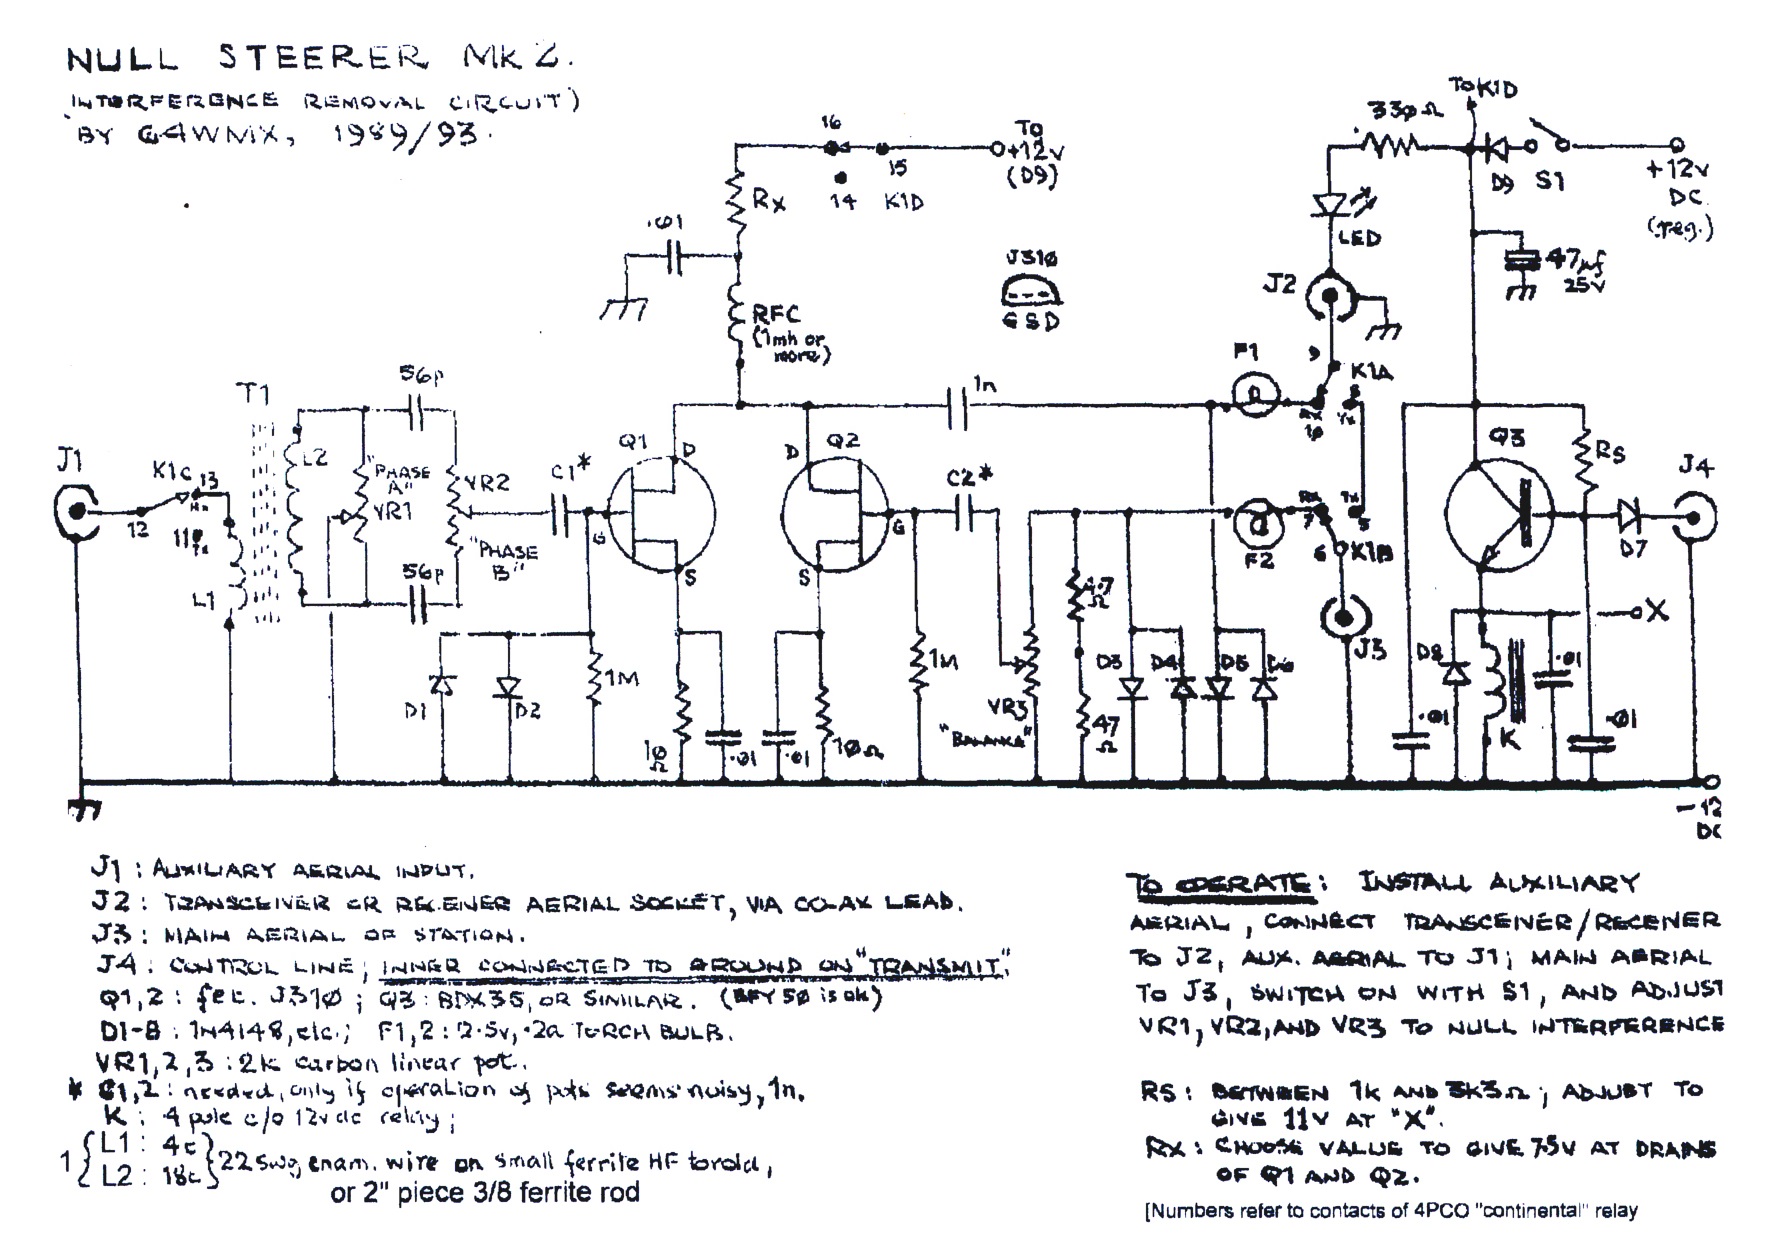 NULL STEERER MK 2.
INTERFERENCE REMOVAL CIRCUIT)
BY G4WMX, 1989/93.
16
15
14
K1D
To
+12v
(D9)
Rx
.01
RFC
(1mh or
more)
J310
G S D
To K1D
330Ω
D9
S1
+12v
DC
(reg.)
LED
47µf
25v
J2
F1
9
K1A
8
Rx
10
Tx
1n
T1
56p
J1
K1C
13
Rx
12
11
Tx
L1
L2
"PHASE
A"
VR1
VR2
"PHASE
B"
56p
C1*
Q1
D
G
S
Q2
D
G
S
C2*
Rx
7
Tx
5
F2
6
K1B
J3
Q3
RS
J4
D7
X
D1
D2
1M
10
Ω
.01
.01
10Ω
1M
VR3
"BALANCE"
47
Ω
47
Ω
D3
D4
D5
D6
D8
.01
K
.01
.01
-12
DC
J1 : AUXILIARY AERIAL INPUT.
J2 : TRANSCEIVER OR RECEIVER AERIAL SOCKET, VIA CO-AX LEAD.
J3 : MAIN AERIAL OF STATION.
J4 : CONTROL LINE; INNER CONNECTED TO GROUND ON "TRANSMIT".
Q1,2 : fet. J310 ; Q3 : BDX35, OR SIMILAR. (BFY 50 is ok)
D1-8 : 1N4148, etc.; F1,2 : 2.5v, .2a TORCH BULB.
VR1,2,3 : 2k carbon linear pot.
* C1,2 : needed, only if operation of pots seems noisy, 1n.
K : 4 pole c/o 12v dc relay;
1 { L1 : 4t } 22 swg enam. wire on small ferrite HF toroid,
L2 : 18t
or 2" piece 3/8 ferrite rod
TO OPERATE : INSTALL AUXILIARY
AERIAL, CONNECT TRANSCEIVER/RECEIVER
TO J2, AUX. AERIAL TO J1; MAIN AERIAL
TO J3, SWITCH ON WITH S1, AND ADJUST
VR1, VR2, AND VR3 TO NULL INTERFERENCE
RS : BETWEEN 1k AND 3k3Ω ; ADJUST TO
GIVE 11V AT "X".
RX : CHOOSE VALUE TO GIVE 7.5V AT DRAINS
OF Q1 AND Q2.
[Numbers refer to contacts of 4PCO "continental" relay